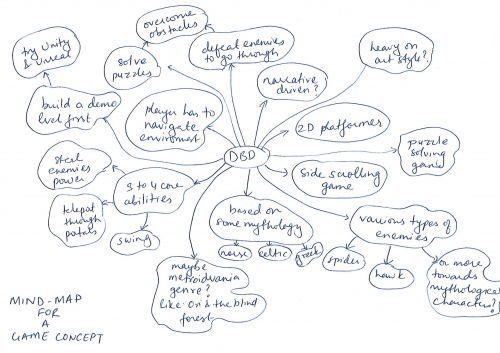 overcome
obstacles
try Unity
& Unreal
solve
puzzles
defeat enemies
to go through
heavy on
art style?
narrative
driven?
build a demo
level first
player has to
navigate
enviroment
2D platformer
DBD
puzzle
solving
game
steal
enemies
power
3 to 4 core
abilities
side scrolling
game
telepat
through
potals
swing
based on
some mythology
norse
celtic
greek
various types of
enemies
spider
hawk
or more
towards
mythological
characters?
maybe
metroidvania
genre?
like Ori & the blind
forest
MIND-MAP
FOR
A
GAME CONCEPT